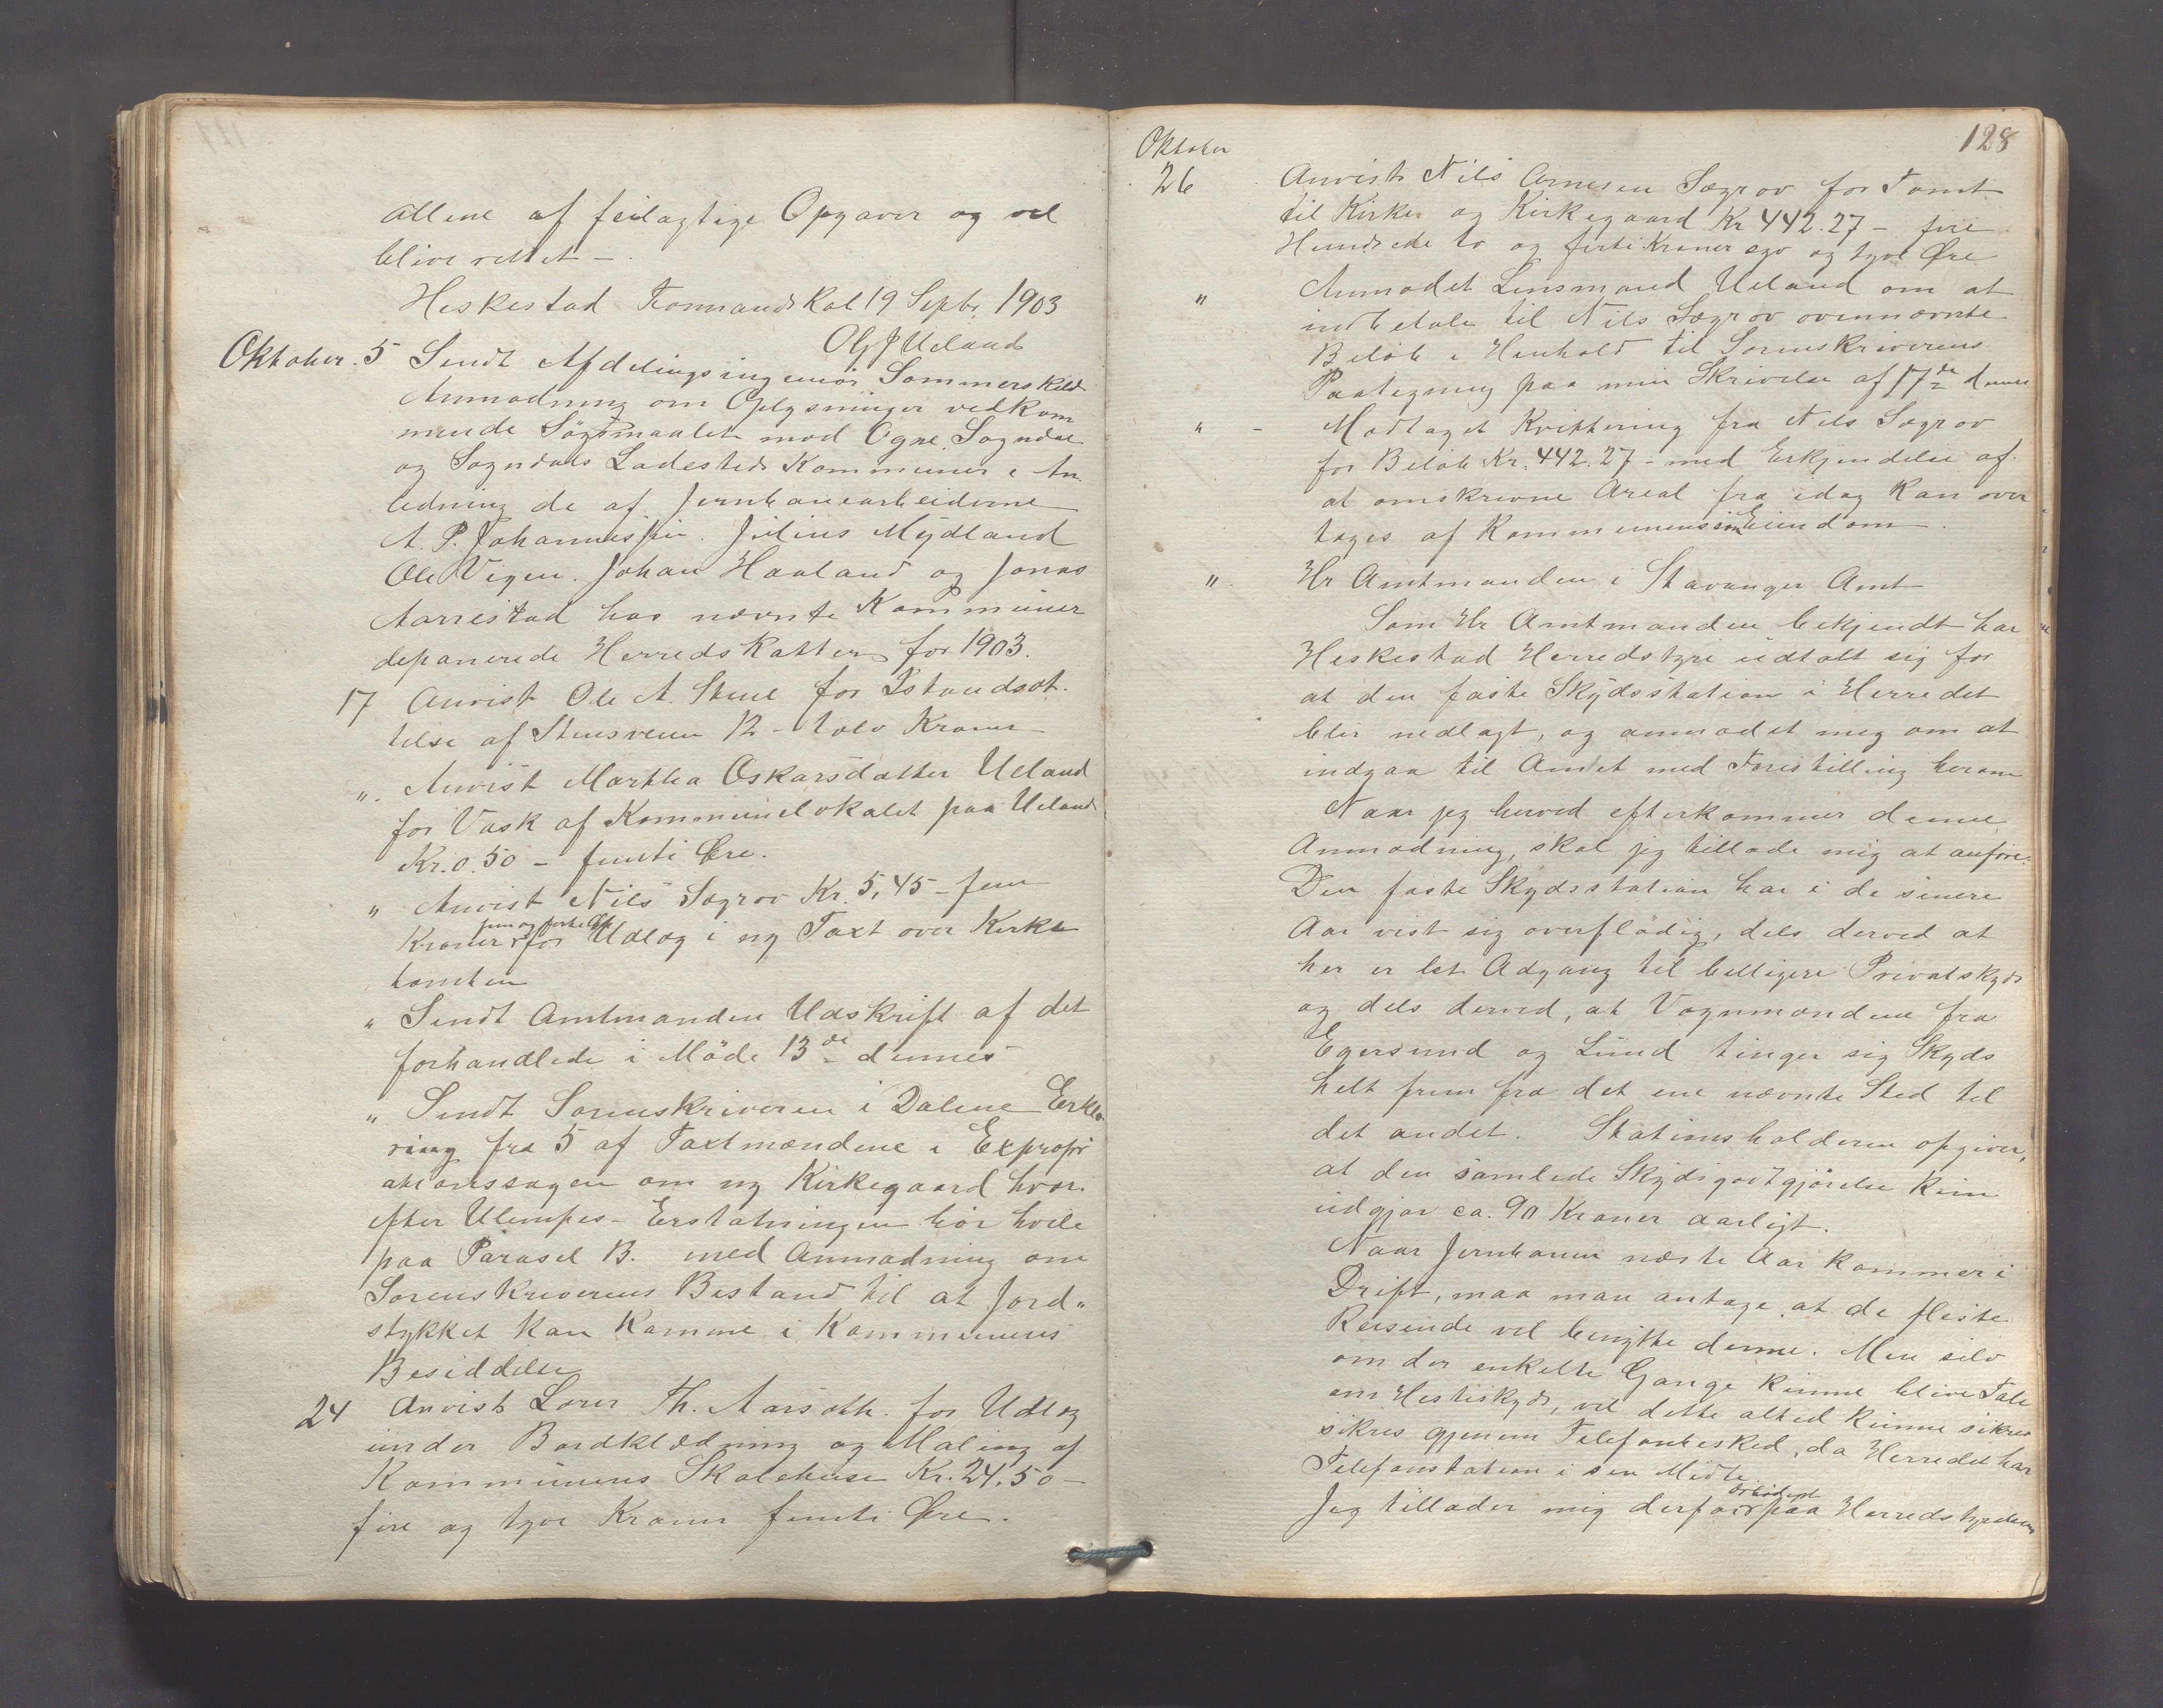 allene af feilagtige Opgaver og vil
blive rettet -
Heskestad Formandskab 19 Septbr 1903
Olj J Ueland
Oktober. 5 Sendt Afdelingsingeniør Sommerskild
Anmodning om Oplysninger vedkom
mende Søgsmaalet mod Ogne Sogndal
og Sogndals Ladesteds Kommuner i An
ledning de af Jernbanearbeiderne
A. P. Johannessen. Julius Mydland
Ole Vegen. Johan Haaland og Jonas
Aarrestad hos nævnte Kommuner
deponerede Herredskatter for 1903.
17 Anvist Ole A. Stene for Istandsæt-
telse af Stensveien 12 - tolv Kroner
". Anvist Martha Oskarsdatter Ueland
for Vask af Kommunelokalet paa Ueland
Kr. 0.50 - femti Øre.
" Anvist Nils Sægrov Kr. 5,45 - fem
Kroner fem og forti Øre for Udlæg i ny Taxt over Kirke
tomten
" Sendt Amtmanden Udskrift af det
forhandlede i Møde 13de dennes
" Sendt Sorenskriveren i Dalene Erklæ
ring fra 5 af Taxtmændene i Expropri
ationssagen om ny Kirkegaard hvor-
efter Ulempes-Erstatningen bør hvile
paa Parasel B. med Anmodning om
Sorenskriverens Bistand til at Jord-
stykket kan komme i Kommunens
Besiddelse
24 Anvist Lærer Th. Aarsoth. for Udlæg
under Bordklædning og Maling af
Kommunens Skolehuse Kr. 24,50 -
fire og tyve Kroner femti Øre.
128
Oktober
26 Anvist Nils Arnesen Sægrov for Tomt
til Kirke og Kirkegaard Kr 442.27 - fire
Hundrede to og firti Kroner syv og tyve Øre
" Anmodet Lensmand Ueland om at
indbetale til Nils Sægrov ovennævnte
Beløb i Henhold til Sorenskriverens
Paategning paa min Skrivelse af 17de dennes
" - Modtaget Kvittering fra Nils Sægrov
for Beløb Kr. 442.27 - med Erkjendelse af
at omskrevne Areal fra idag kan over
tages af Kommunen som Eiendom.
" Hr Amtmanden i Stavanger Amt
Som Hr Amtmanden bekjendt har
Heskestad Herredstyre udtalt sig for
at den faste Skydsstation i Herredet
blir nedlagt, og anmodet mig om at
indgaa til Amtet med Forestilling herom
Naar jeg herved efterkommer denne
Anmodning, skal jeg tillade mig at anføre:
Den faste Skydsstation har i de senere
Aar vist sig overflødig, dels derved at
her er let Adgang til billigere Privatskyds
og dels derved, at Vognmændene fra
Egersund og Lund tinger sig Skyds
helt frem fra det ene nævnte Sted til
det andet. Stationsholderen opgiver,
at den samlede Skydsgodtgjørelse kun
udgjør ca. 90 Kroner aarligt.
Naar Jernbanen næste Aar kommer i
Drift, maa man antage at de fleste
Reisende vil benytte denne. Men selv
om der enkelte Gange kunne blive Tale
om Hesteskyds, vil dette altid kunne sikres
sikres gjenem Telefonbesked, da Herredet har
Telefonstation i sin Midte.
Jeg tillader mig derfor ærbødigst paa Herredstyrelsens